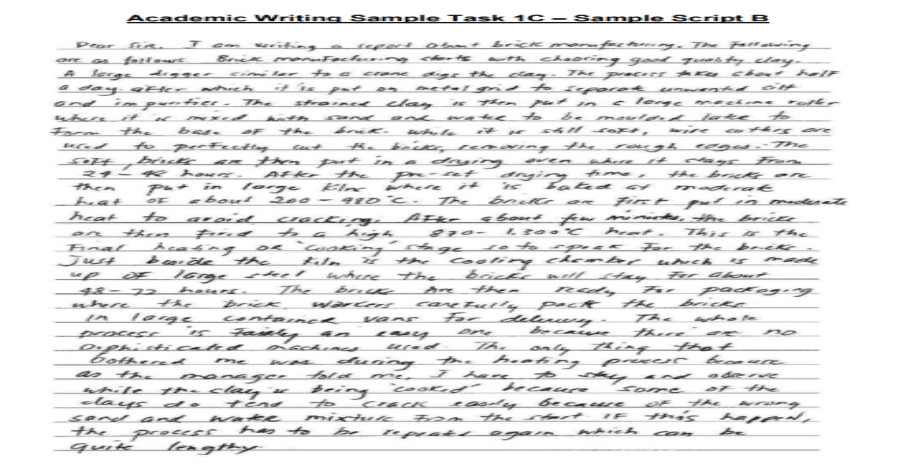 Academic Writing Sample Task 1C – Sample Script B
Dear Sir. I am writing a report about brick manufacturing. The following
are as follows. Brick manufacturing starts with choosing good quality clay.
A large digger similar to a crane digs the clay. The process takes about half
a day. after which it is put on metal grid to separate unwanted
and impurities. The strained clay is then put in a large machine roller
where it is mixed with sand and water to be moulded to
form the base of the brick. while it is still soft, wire cutters are
used to perfectly cut the bricks, removing the rough edges. The
soft, bricks are then put in a drying oven where it stays from
24 - 48 hours. After the pre-set drying time, the bricks are
then put in large kiln where it is baked at moderate
heat of about 200 - 980°C. The bricks are first put in moderate
heat to avoid cracking. After about few minutes, the bricks
are then fired to a high 870 - 1.300°C heat. This is the
Final heating or "cooking" stage so to speak for the bricks.
Just beside the kiln is the cooling chamber which is made
up of large steel where the bricks will stay for about
48 - 72 hours. The bricks are then ready for packaging
where the brick workers carefully pack the bricks
in large vans for delivery. The whole
process is an easy one because there are no
machines used. The only thing that
bothered me was during the heating process because
as the manager told me, I have to stay and observe
while the clay is being "cooked" because some of the
clays do tend to crack easily because of the wrong
sand and water mixture from the start if this happen,
the process has to be again which can be
quite lengthy.